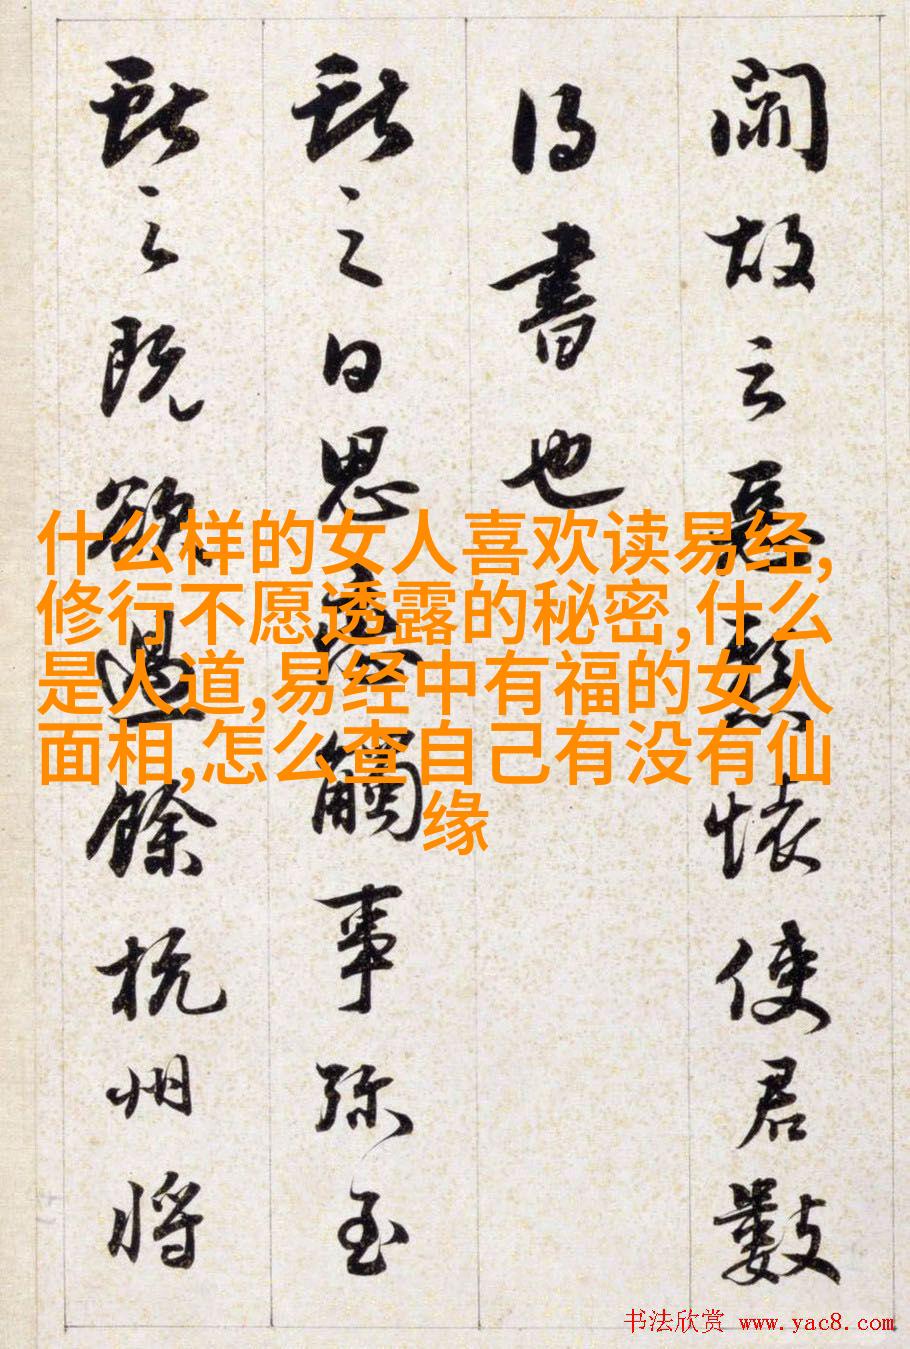 故云惡懸懷使君數
得書也
獻之白思戀觸事彌至
獻之既欲過餘杭州將
什么样的女人喜欢读易经,
修行不愿透露的秘密,什么
是人道,易经中有福的女人
面相,怎么查自己有没有仙
缘
书法欣赏 www.yac8.com